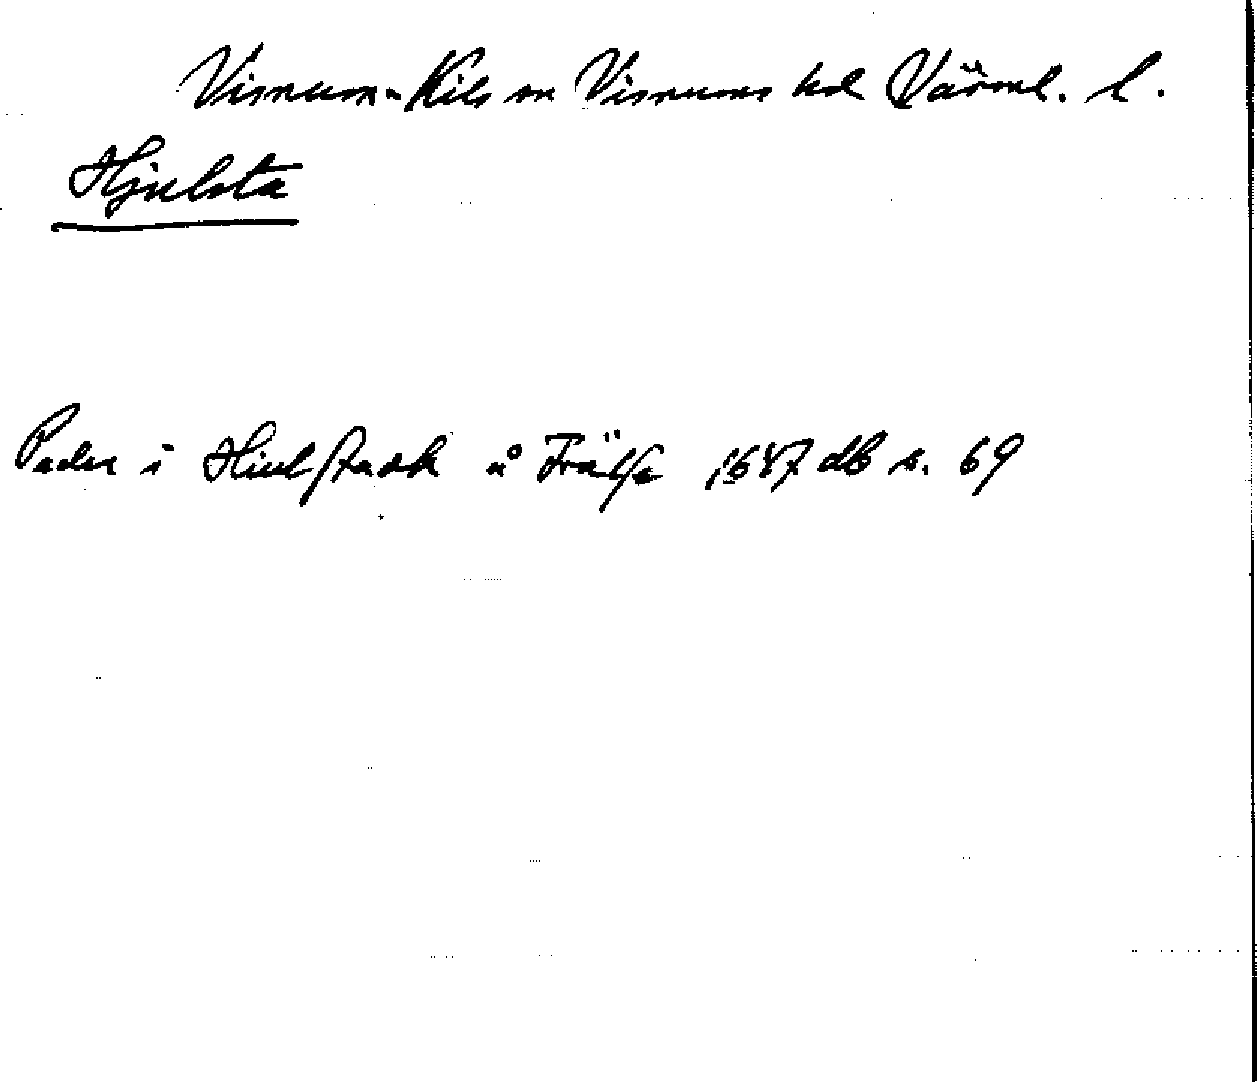 Visnum-Kils sn Visnums hd Värml. l.
Hjulsta
Peder i Hiulstadh å Frälse 1687 db s. 69